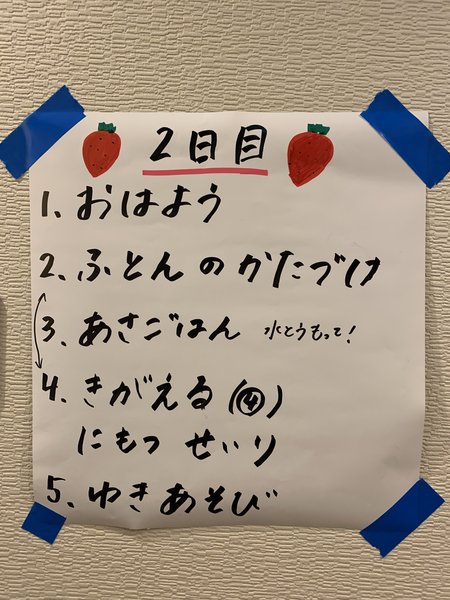 2日目
1. おはよう
2. ふとんのかたづけ
3. あさごはん 水とうもって!
4. きがえる(㊃)
にもつ せいり
5. ゆきあそび